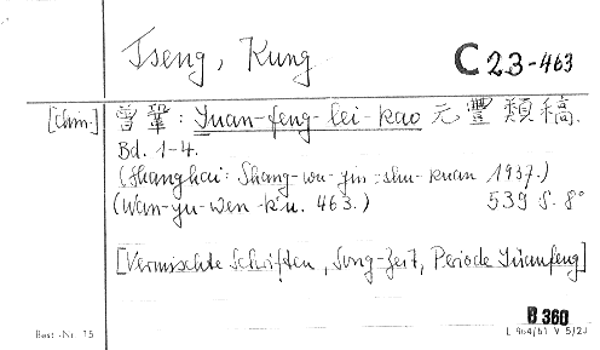 Tseng, Kung
C 23-463
[chin.] 曾鞏: Yuan-feng-lei-kao 元豐類稿.
Bd. 1-4.
(Shanghai: Shang-wu-yin-shu-kuan 1937.)
(Wan-yu-wen-k'u. 463.) 539 S. 8°
[Vermischte Schriften, Sung-Zeit, Periode Yüanfeng]
B 360
Best.-Nr. 15